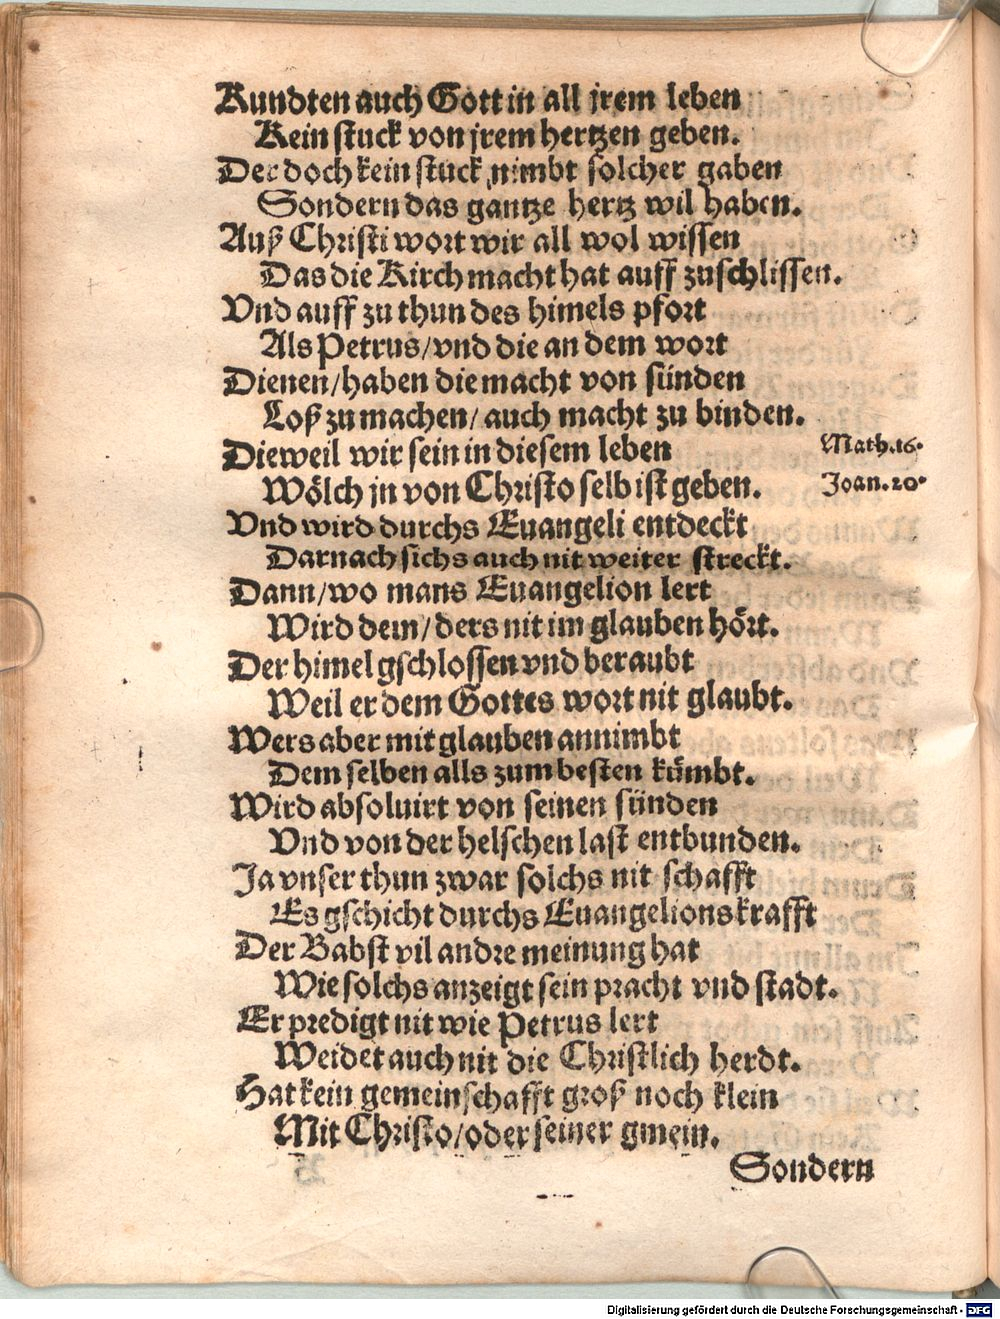 Kundten auch Gott in all jrem leben
Kein stuck von jrem hertzen geben.
Der doch kein stuck nimbt solcher gaben
Sondern das gantze hertz wil haben.
Auß Christi wort wir all wol wissen
Das die Kirch macht hat auff zuschlissen.
Vnd auff zu thun des himels pfort
Als Petrus/vnd die an dem wort
Dienen/haben die macht von sünden
Loß zu machen/auch macht zu binden.
Dieweil wir sein in diesem leben
Math.16.
Wölch jn von Christo selb ist geben.
Joan.20.
Vnd wird durchs Euangeli entdeckt
Darnach sichs auch nit weiter streckt.
Dann/wo mans Euangelion lert
Wird dem/ders nit im glauben hört.
Der himel gschlossen vnd beraubt
Weil er dem Gottes wort nit glaubt.
Wers aber mit glauben annimbt
Dem selben alls zum besten kümbt.
Wird absoluirt von seinen sünden
Vnd von der helschen last entbunden.
Ja vnser thun zwar solchs nit schafft
Es gschicht durchs Euangelions krafft
Der Babst vil andre meinung hat
Wie solchs anzeigt sein pracht vnd stadt.
Er predigt nit wie Petrus lert
Weidet auch nit die Christlich herdt.
Hat kein gemeinschafft groß noch klein
Mit Christo/oder seiner gmein.
Sondern
Digitalisierung gefördert durch die Deutsche Forschungsgemeinschaft - DFG